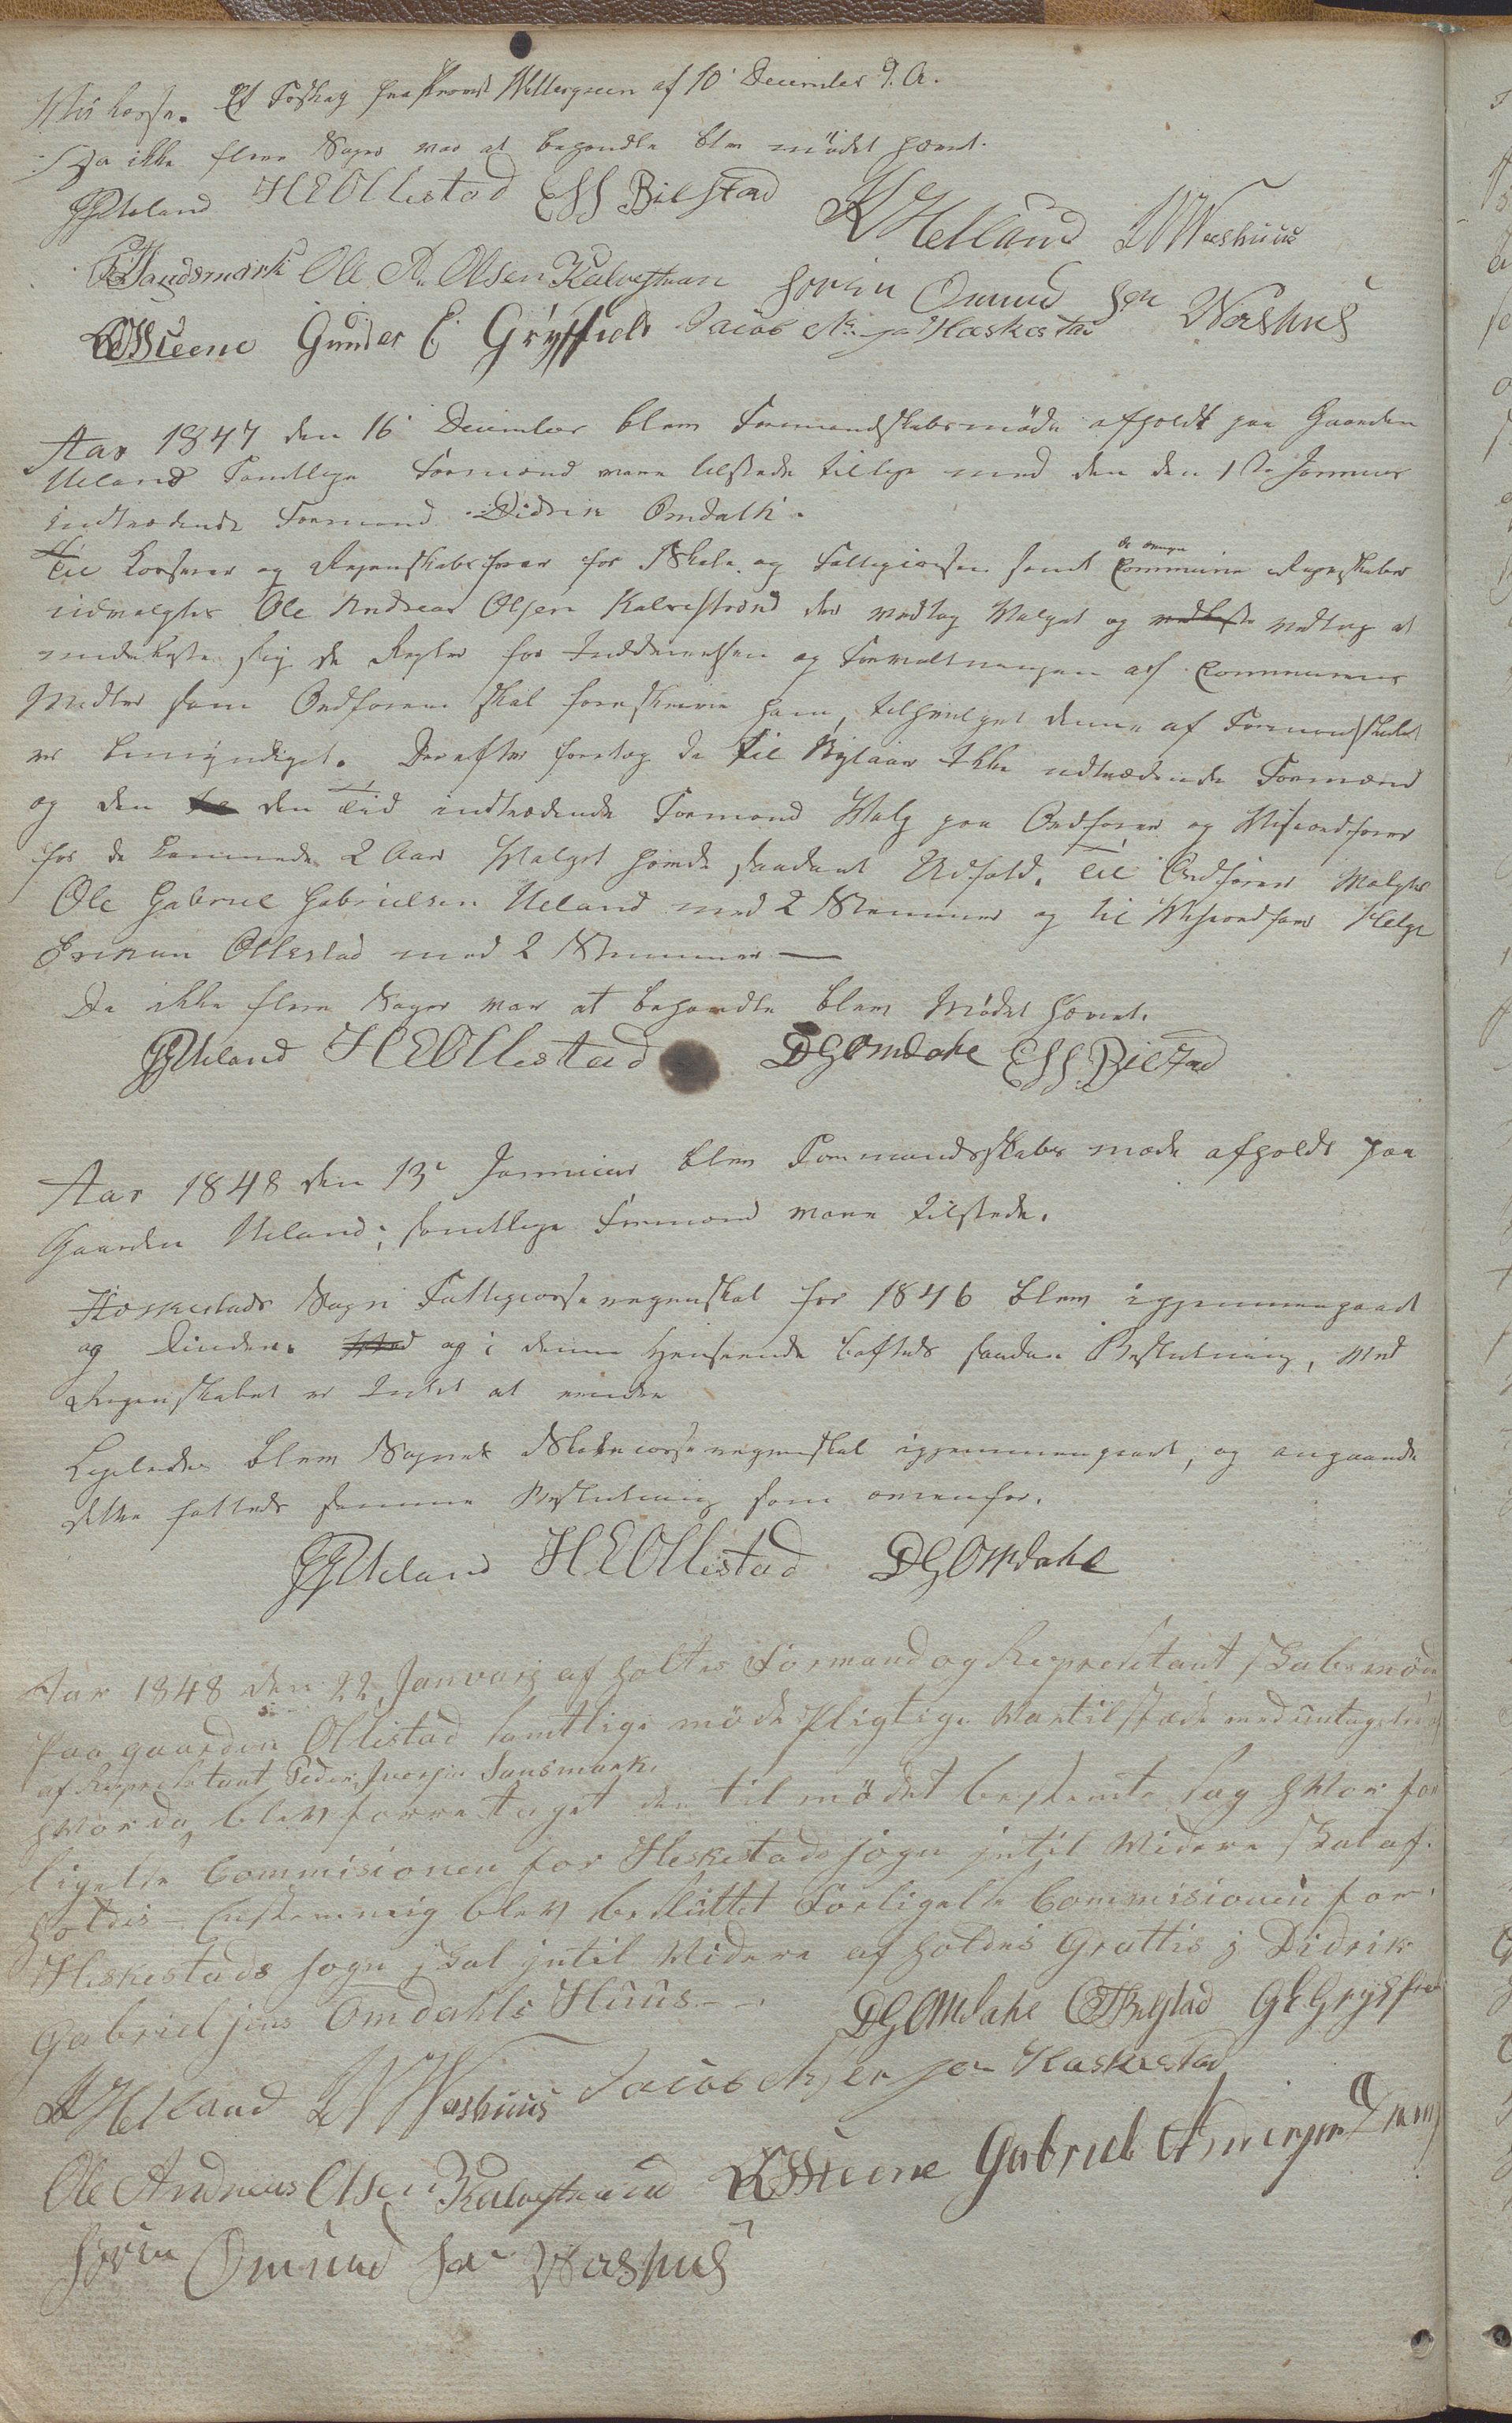 Huskasse. Et Forslag fra Provst Wettergreen af 10' December d. A.
Da ikke flere Sager var at behandle blev mødet hævet.
GGUeland HEOllestad ESSBilstad KHelland LWWashuus
Sandsmark Ole A. Olsen Kalvestrøm Sören Omund Sön Washus
Skeene Gunder E Grøsfield Jacob A. Haskestad
Aar 1847 den 16' December blev Formandskabsmøde afholdt paa Gaarden
Ueland samtlige Formænd vare tilstede tillige med den den 1ste Januar
indtrædende Formand Didrik Omdahl.
Til Kasserer og Regnskabsfører for Skole og Fattigkassen samt de øvrige Commune Regnskaber
udvalgtes Ole Andreas Olsen Kalvestrand der modtog Valget og vedtog at
underkaste sig de Regler for Inddrivelsen og Forvaltningen af Communens
Midler som Ordføreren skal foreskrive ham, tilhvilket denne af Formandskabet
er bemyndiget. Derefter foretog de til Nytaar Ikke udtrædende Formænd
og den den Tid indtrædende Formand Valg paa Ordfører og Viseordfører
for de kommende 2 Aar Valget havde saadant Udfald. Til Ordfører Valgtes
Ole Gabriel Gabrielsen Ueland med 2 Stemmer og til Viseordfører Helge
Eriksen Ollestad med 2 Stemmer —
Da ikke flere Sager var at behandle blev Mødet hævet.
GGUeland HEOllestad DGOmdahl ESSBilstad
Aar 1848 den 13' Januar blev Formandsskabs møde afholdt paa
Gaarden Ueland; samtlige Formænd vare tilstede.
Haskestads Sogns Fattigkasseregnskab for 1846 blev igjennemgaaet
og og i denne Henseende fattedes saadan Beslutning, Med
Regnskabet er Intet at erindre
Ligeledes blev Sognets Skolekasseregnskab igjennemgaaet, og angaaende
dette fattedes samme Beslutning som ovenfor.
GGUeland HEOllestad DGOmdahl
Aar 1848 den 22 Januarj af holtes Formand og Representant Skabsmøde
paa gaarden Ollistad samtlige møde Pligtige Var tilstæde med undtagelse
af Representant Peder Iversen Sansmark.
hvor da blev forretaget den til mødet bestemte sag hvor for
ligelse Commisionen for Heskestads sogn jntil Widere skal af
holdes — Enstemmig blev besluttet Forligelse Commisionen for
Heskestads sogn skal jntil Widere af holdes Grattis j Didrik
Gabrieljens Omdahls Huus —
DGOmdahl ESSBilstad GEGrøsfield
KHelland LWWashuus Jacob Haskestad
Ole Andreas Olsen Kalvestrand Skeene Gabriel
Sören Omund Sön Washus